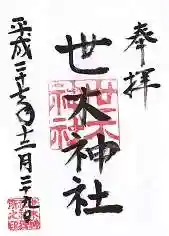 奉拝
世木神社
平成二十七年十二月二十九日